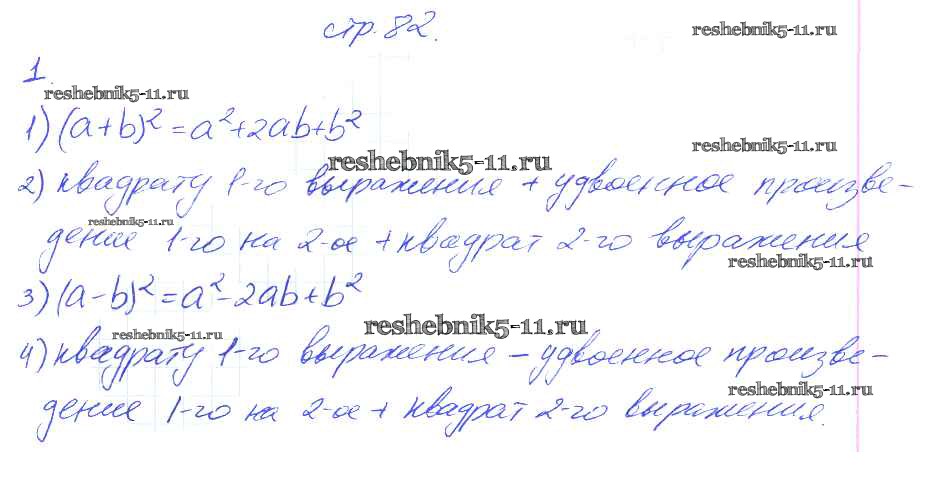 стр. 82.
reshebnik5-11.ru
1.
reshebnik5-11.ru
1) (a+b)² = a²+2ab+b²
reshebnik5-11.ru
reshebnik5-11.ru
2) квадрату 1-го выражения + удвоенное произве-
reshebnik5-11.ru
дение 1-го на 2-ое + квадрат 2-го выражения
reshebnik5-11.ru
3) (a-b)² = a²-2ab+b²
reshebnik5-11.ru
reshebnik5-11.ru
4) квадрату 1-го выражения - удвоенное произве-
reshebnik5-11.ru
дение 1-го на 2-ое + квадрат 2-го выражения.